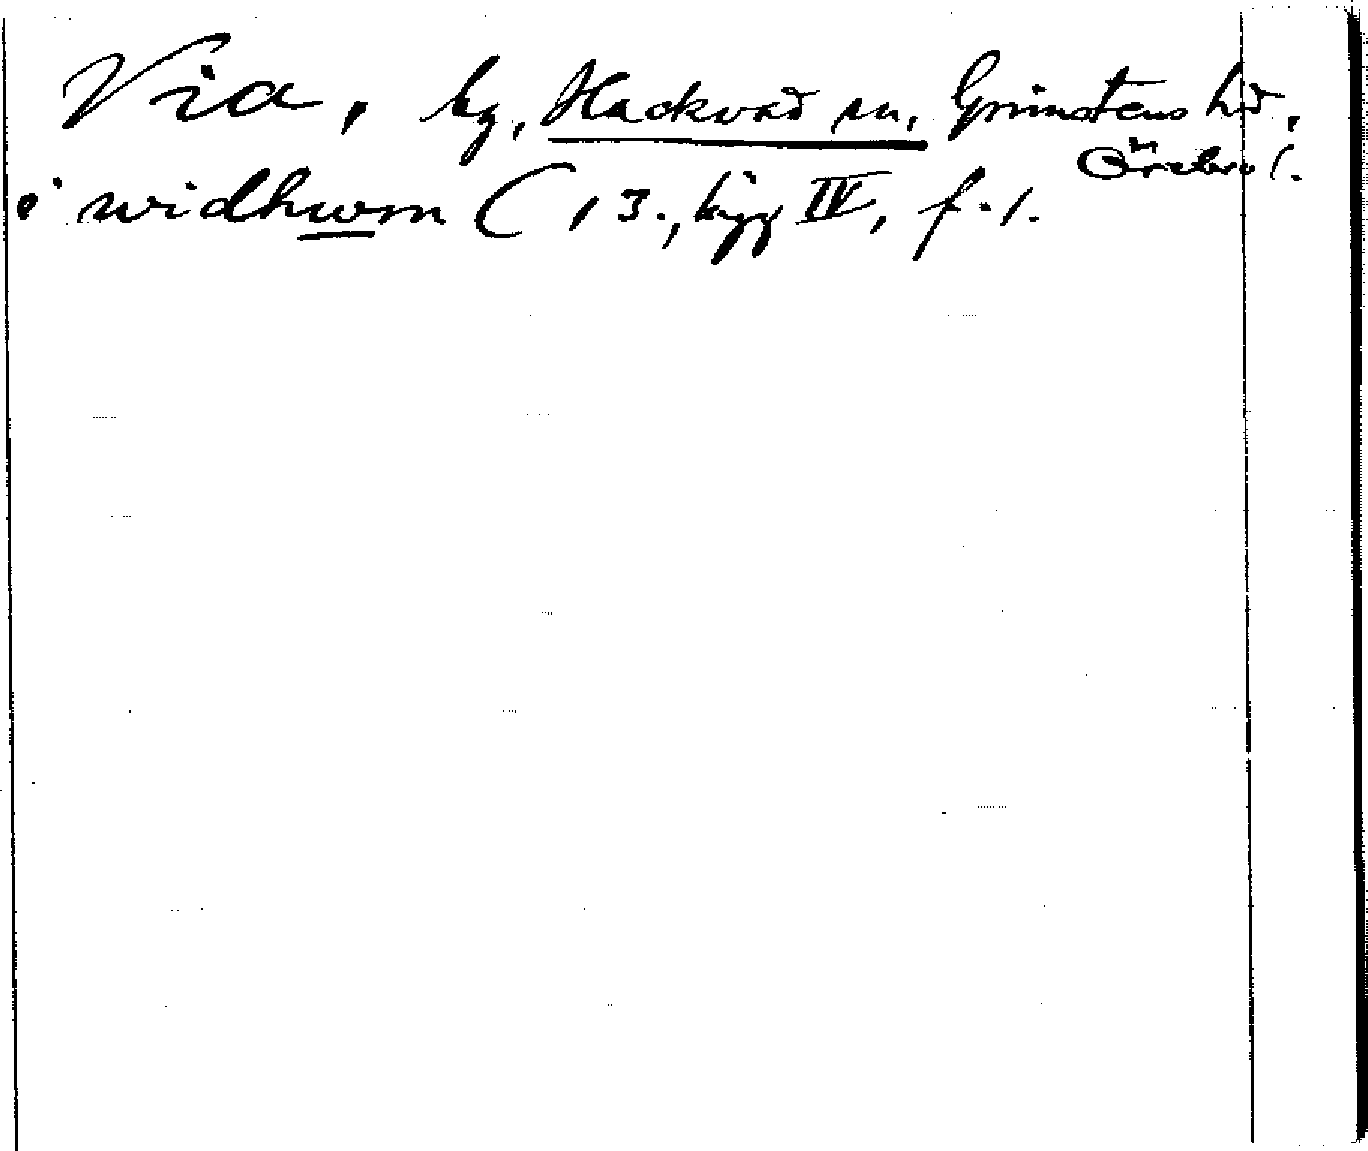 Via, by, Hackvad sn, Grimstens hd,
Örebro l.
i widhwm ( 13., IV, f. 1.